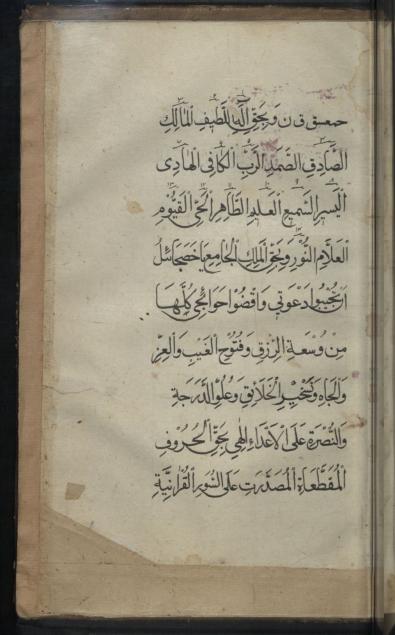 حمعسق ق ن وَبِحَقِّ اللّٰهِ اللَّطِيفِ الْمَالِكِ
الصَّادِقِ الصَّمَدِ الرَّبِّ الْكَافِي الْهَادِي
الْيَسِيرِ السَّمِيعِ الْعَلِيمِ الطَّاهِرِ الْحَيِّ الْقَيُّومِ
الْعَلَّامِ النُّورِ وَبِحَقِّ الْمَلِكِ الْجَامِعِ يَا
اَجِيبُوا دَعْوَتِي وَاقْضُوا حَوَائِجِي كُلَّهَا
مِنْ وُسْعَةِ الرِّزْقِ وَفُتُوحِ الْغَيْبِ وَالْعِزِّ
وَالْجَاهِ وَتَسْخِيرِ الْخَلَائِقِ وَعُلُوِّ الدَّرَجَةِ
وَالنُّصْرَةِ عَلَى الْاَعْدَاءِ اِلٰهِي بِحَقِّ الْحُرُوفِ
الْمُقَطَّعَاةِ الْمُصَدَّرَتِ عَلَى السُّوَرِ الْقُرْاٰنِيَّةِ